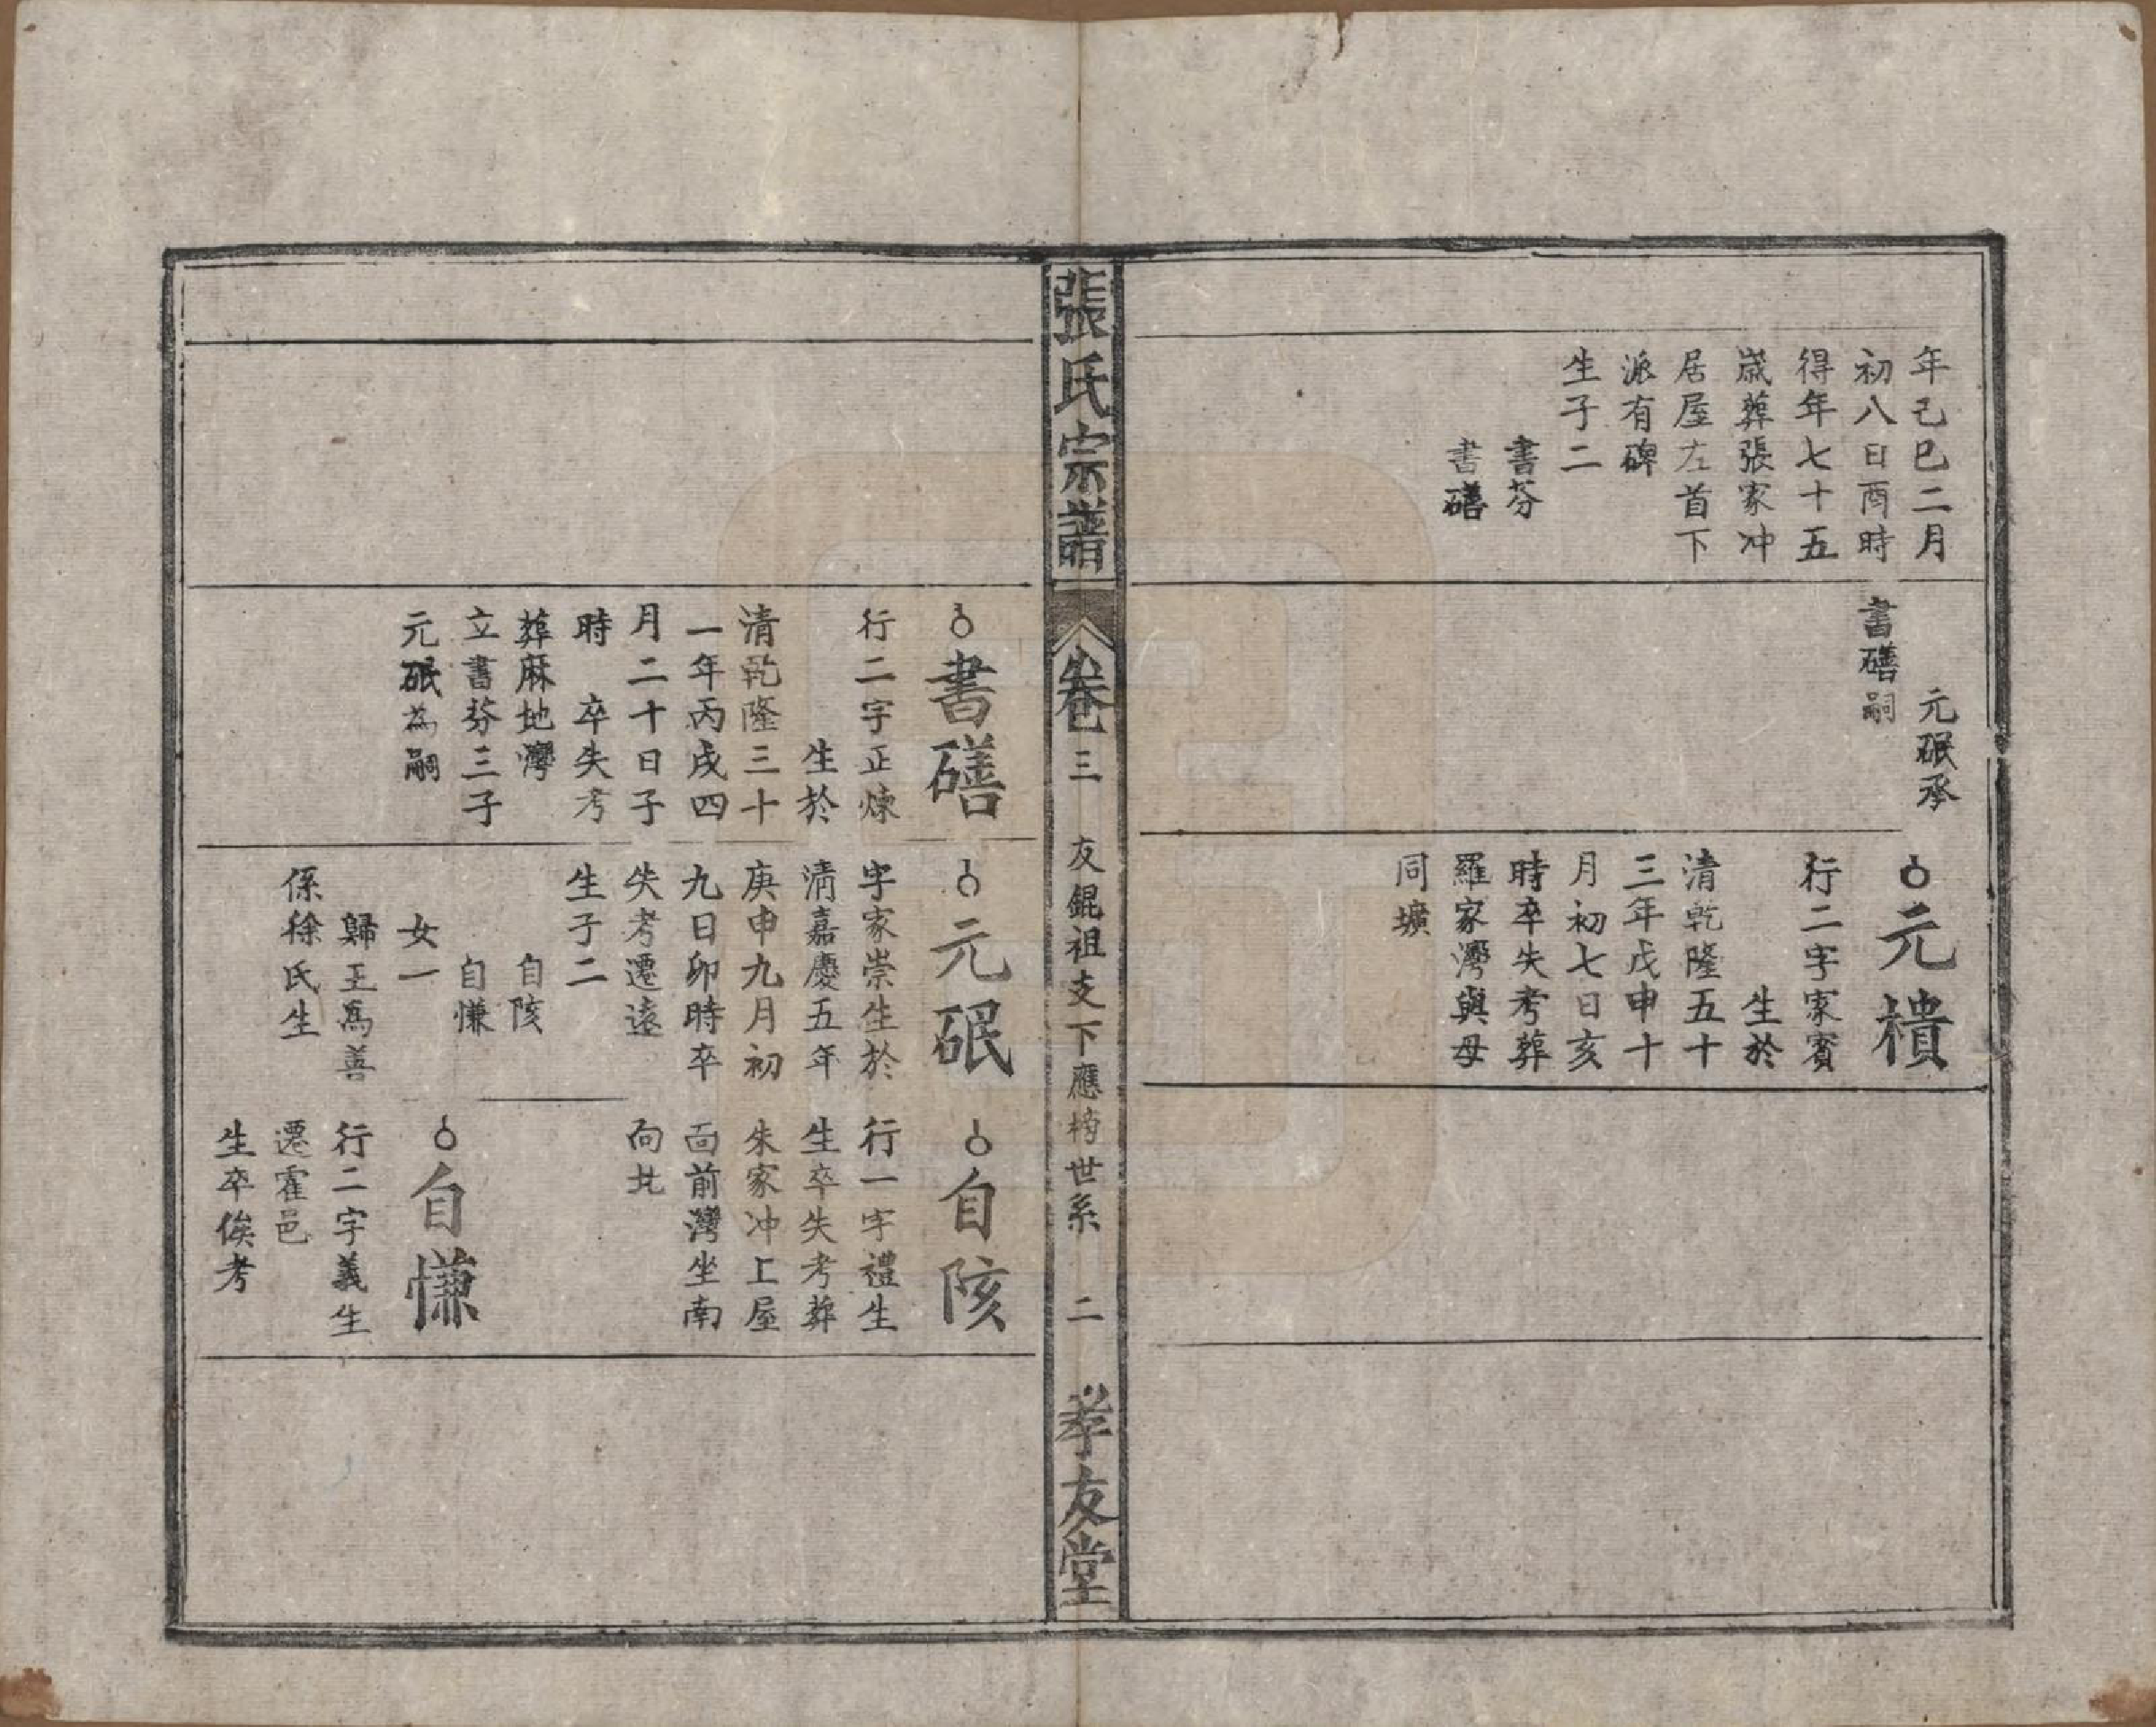 年己巳二月
初八日酉時
得年七十五
歲葬張家冲
居屋左首下
派有碑
生子二
書芬
書礠
元砇承
書礠嗣
元樻
行二字家賓
生於
清乾隆五十
三年戊申十
月初七日亥
時卒失考葬
羅家灣與母
同壙
張氏宗譜
卷三
友錕祖支下應枬世系
二
孝友堂
書礠
行二字正煉
生於
清乾隆三十
一年丙戌四
月二十日子
時 卒失考
葬麻地灣
立書芬三子
元砇為嗣
元砇
字家崇生於
清嘉慶五年
庚申九月初
九日卯時卒
失考遷遠
生子二
自陔
自慊
女一
歸王爲善
係徐氏生
自陔
行一字禮生
生卒失考葬
朱家冲上屋
面前灣坐南
向北
自慊
行二字義生
遷霍邑
生卒俟考